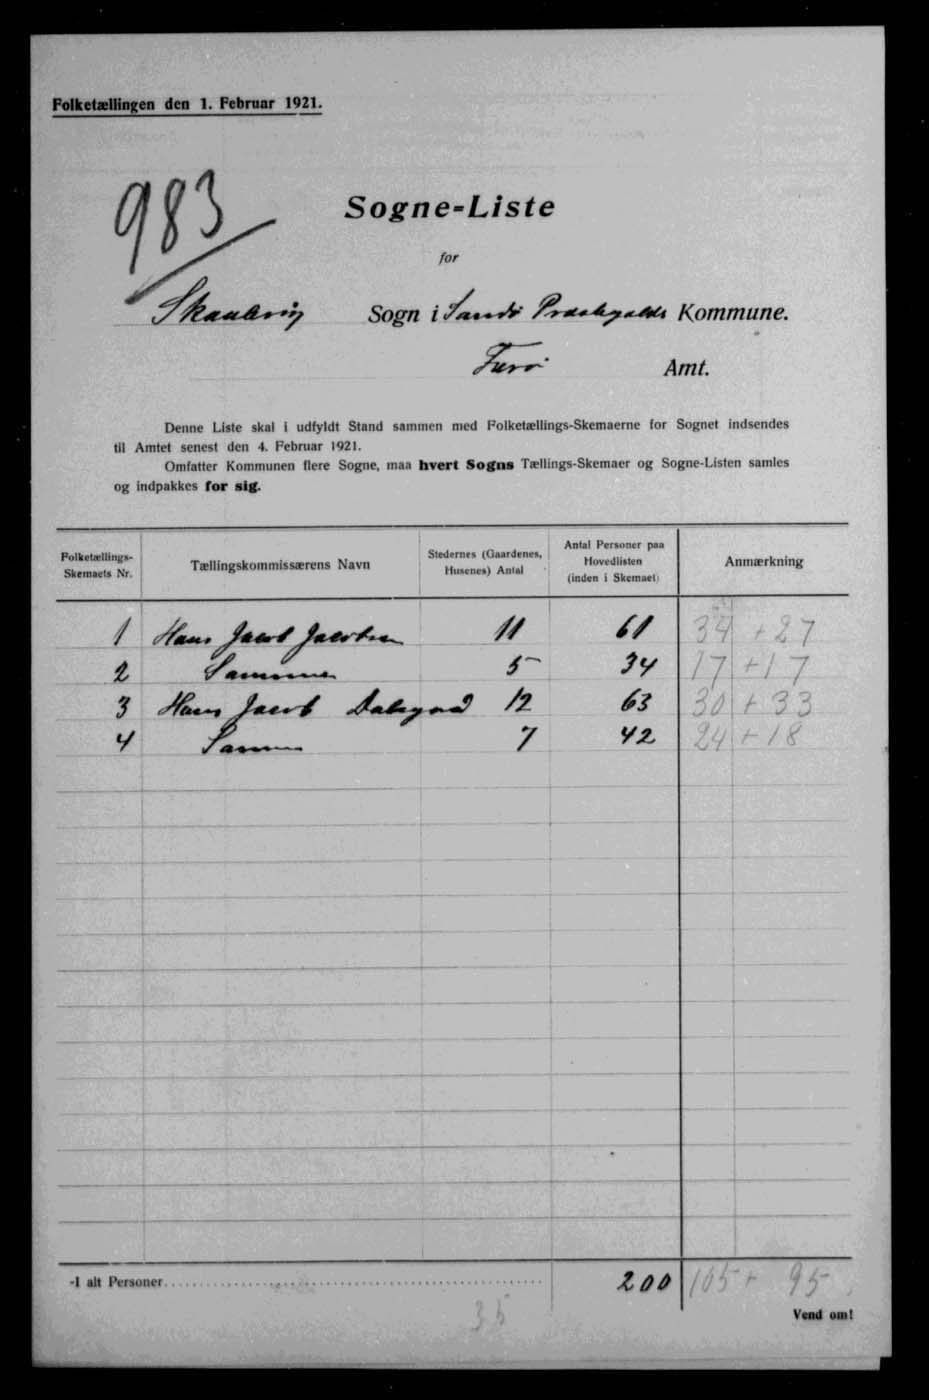 Folketællingen den 1. Februar 1921.
983
Sogne-Liste
for
Skaalevig Sogn i Sandø Præstegælds Kommune.
Færø Amt.
Denne Liste skal i udfyldt Stand sammen med Folketællings-Skemaerne for Sognet indsendes
til Amtet senest den 4. Februar 1921.
Omfatter Kommunen flere Sogne, maa hvert Sogns Tællings-Skemaer og Sogne-Listen samles
og indpakkes for sig.
Folketællings-Skemaets Nr. Tællingskommissærens Navn Stedernes (Gaardenes, Husenes) Antal Antal Personer paa Hovedlisten (inden i Skemaet) Anmærkning
1 Hans Jacob Jacobsen 11 61 34 + 27
2 Samme 5 34 17 + 17
3 Hans Jacob Dalsgaard 12 63 30 + 33
4 Samme 7 42 24 + 18
I alt Personer 200 105 + 95
35
Vend om!